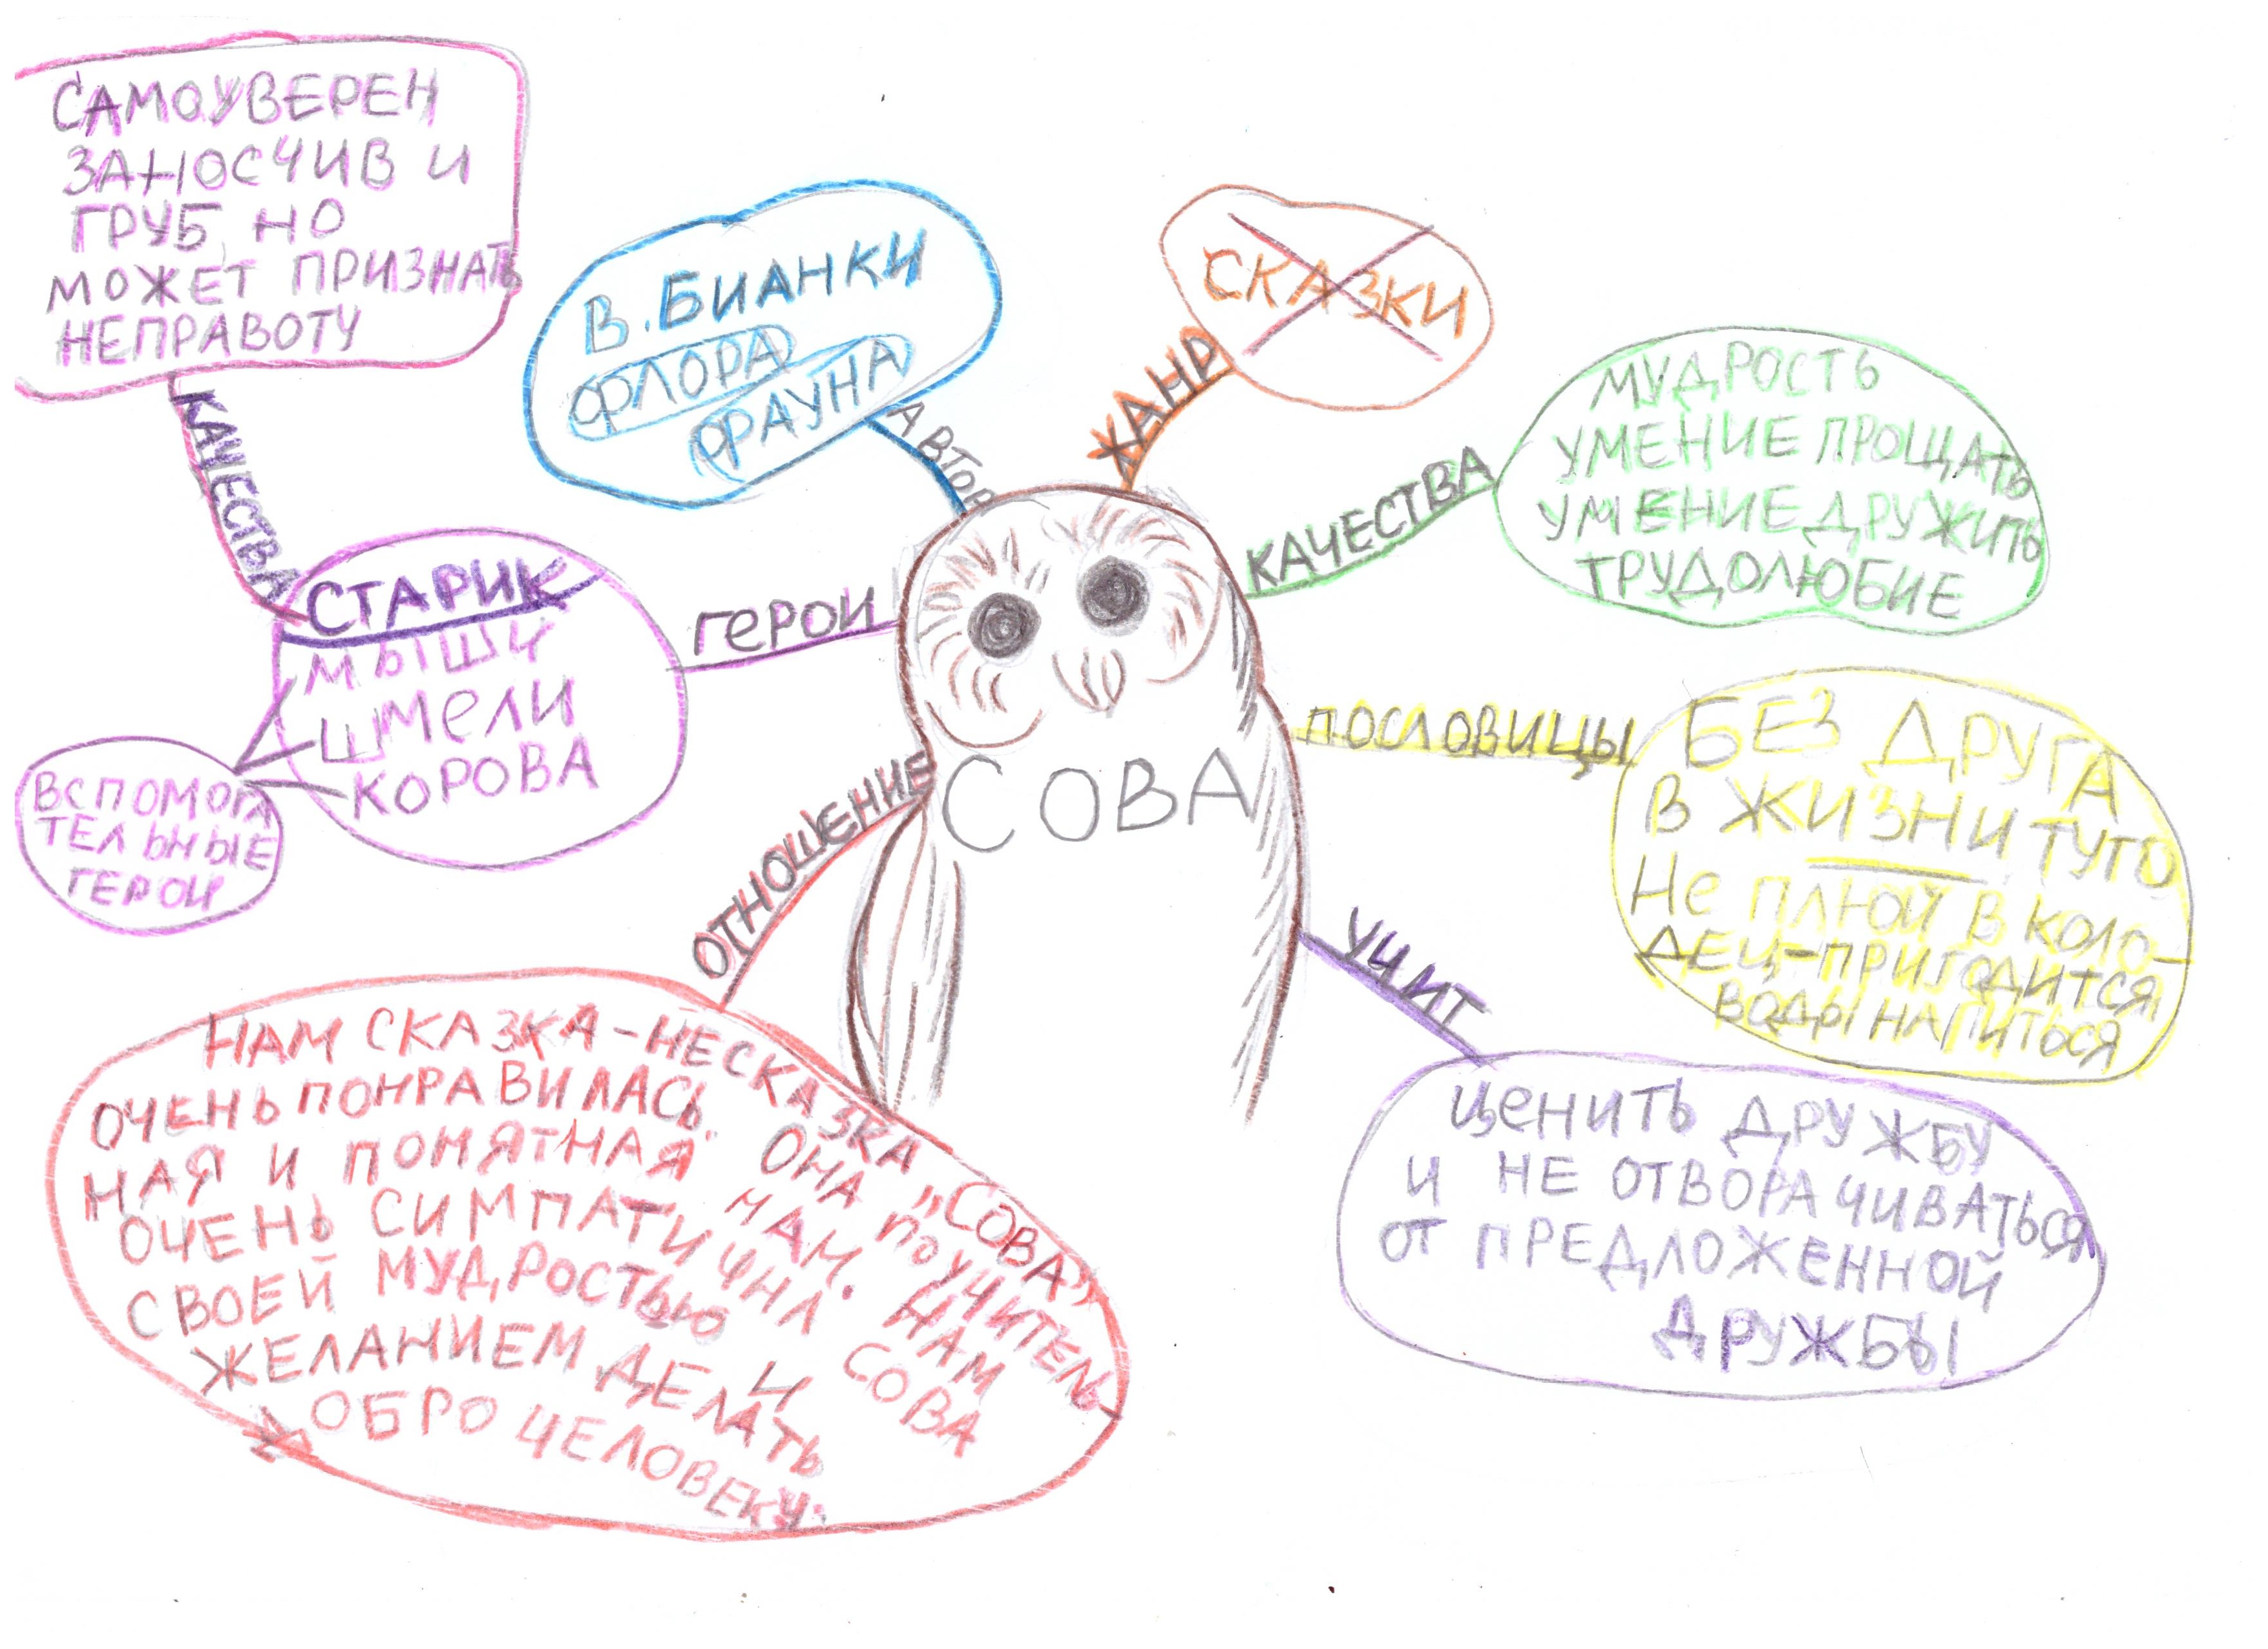 САМОУВЕРЕН
ЗАНОСЧИВ И
ГРУБ, НО
МОЖЕТ ПРИЗНАТЬ
НЕПРАВОТУ
КАЧЕСТВА
В. БИАНКИ
ФЛОРА
ФАУНА
АВТОР
СКАЗКИ
ЖАНР
МУДРОСТЬ
УМЕНИЕ ПРОЩАТЬ
УМЕНИЕ ДРУЖИТЬ
ТРУДОЛЮБИЕ
КАЧЕСТВА
СТАРИК
МЫШИ
ШМЕЛИ
КОРОВА
ГЕРОИ
ВСПОМОГА
ТЕЛЬНЫЕ
ГЕРОИ
СОВА
ПОСЛОВИЦЫ
БЕЗ ДРУГА
В ЖИЗНИ ТУГО
НЕ ПЛЮЙ В КОЛО-
ДЕЦ-ПРИГОДИТСЯ
ВОДЫ НАПИТЬСЯ
ОТНОШЕНИЕ
НАМ СКАЗКА-НЕСКАЗКА „СОВА”
ОЧЕНЬ ПОНРАВИЛАСЬ. ОНА ПОУЧИТЕЛЬ-
НАЯ И ПОНЯТНАЯ НАМ. НАМ
ОЧЕНЬ СИМПАТИЧНА СОВА
СВОЕЙ МУДРОСТЬЮ И
ЖЕЛАНИЕМ ДЕЛАТЬ
ДОБРО ЧЕЛОВЕКУ.
УЧИТ
ЦЕНИТЬ ДРУЖБУ
И НЕ ОТВОРАЧИВАТЬСЯ
ОТ ПРЕДЛОЖЕННОЙ
ДРУЖБЫ